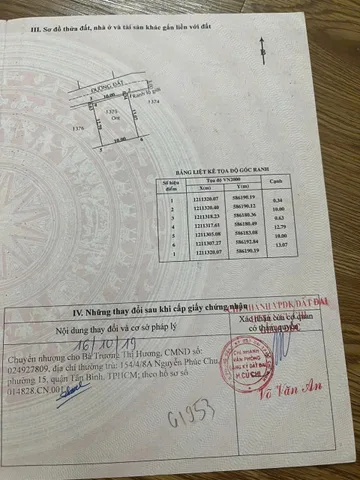 III. Sơ đồ thửa đất, nhà ở và tài sản khác gắn liền với đất
B
ĐƯỜNG ĐẤT
10.00
Ranh lộ giới
T.374
T.375
T.376
12.79
13.07
10.00
BẢNG LIỆT KÊ TỌA ĐỘ GÓC RANH
Số hiệu điểm
Tọa độ VN2000
Cạnh
X(m)
Y(m)
1 1211320.07 586190.19
0.34
2 1211320.40 586190.12
10.00
3 1211318.23 586180.36
0.63
4 1211317.61 586180.49
12.79
5 1211305.08 586183.08
10.00
6 1211307.27 586192.84
13.07
1 1211320.07 586190.19
IV. Những thay đổi sau khi cấp giấy chứng nhận
Nội dung thay đổi và cơ sở pháp lý
Xác nhận của cơ quan
có thẩm quyền
16/10/19
Chuyển nhượng cho Bà Trương Thị Hương, CMND số:
024927809, địa chỉ thường trú: 154/4/8A Nguyễn Phúc Chu,
phường 15, quận Tân Bình, TPHCM; theo hồ sơ số
014828.CN.001
CHI NHÁNH
VĂN PHÒNG
ĐĂNG KÝ ĐẤT ĐAI
H.CỦ CHI
Võ Văn An
G1953